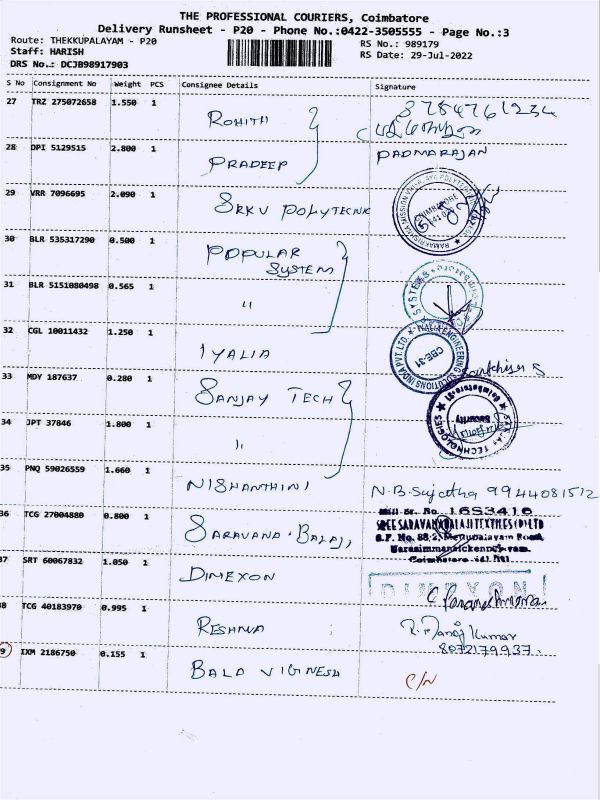 THE PROFESSIONAL COURIERS, Coimbatore
Delivery Runsheet - P20 - Phone No.:0422-3505555 - Page No.:3
Route: THEKKUPALAYAM - P20 RS No.: 989179
Staff: HARISH RS Date: 29-Jul-2022
DRS No.: DCJB98917903
S No Consignment No Weight PCS Consignee Details Signature
27 TRZ 275072658 1.550 1 ROHITH
28 DPI 5129515 2.800 1 PRADEEP PADMARAJAN
29 VRR 7096695 2.090 1 SRKV POLYTECNIK
30 BLR 535317290 0.500 1 POPULAR
SYSTEM
31 BLR 5151080498 0.565 1 "
SYSTEMS
32 CGL 10011432 1.250 1 IYALIA
IYALIA ENGINEERING SOLUTIONS INDIA PVT.LTD.
CBE-31
33 MDY 187637 0.280 1 SANJAY TECH
34 JPT 37846 1.800 1 "
SANJAY TECHNOLOGIES ★ Coimbatore-31 ★
Security
35 PNQ 59026559 1.660 1 NISHANTHINI N.B.Sujatha 9944081512
36 TCG 27004880 0.800 1 SARAVANA BALAJI
Mill Sr. No. 16S3416
SREE SARAVANABALAJI TEXTILES (P) LTD
S.F. No. 88/2, Mettupalayam Road,
Narasimmanaickenpalayam,
Coimbatore
37 SRT 60067832 1.050 1 DIMEXON DIMEXON
38 TCG 40183970 0.995 1 RESHMA R. Manoj Kumar
8072179937.
39 IXM 2186750 0.155 1 BALA VIGINESH C/N